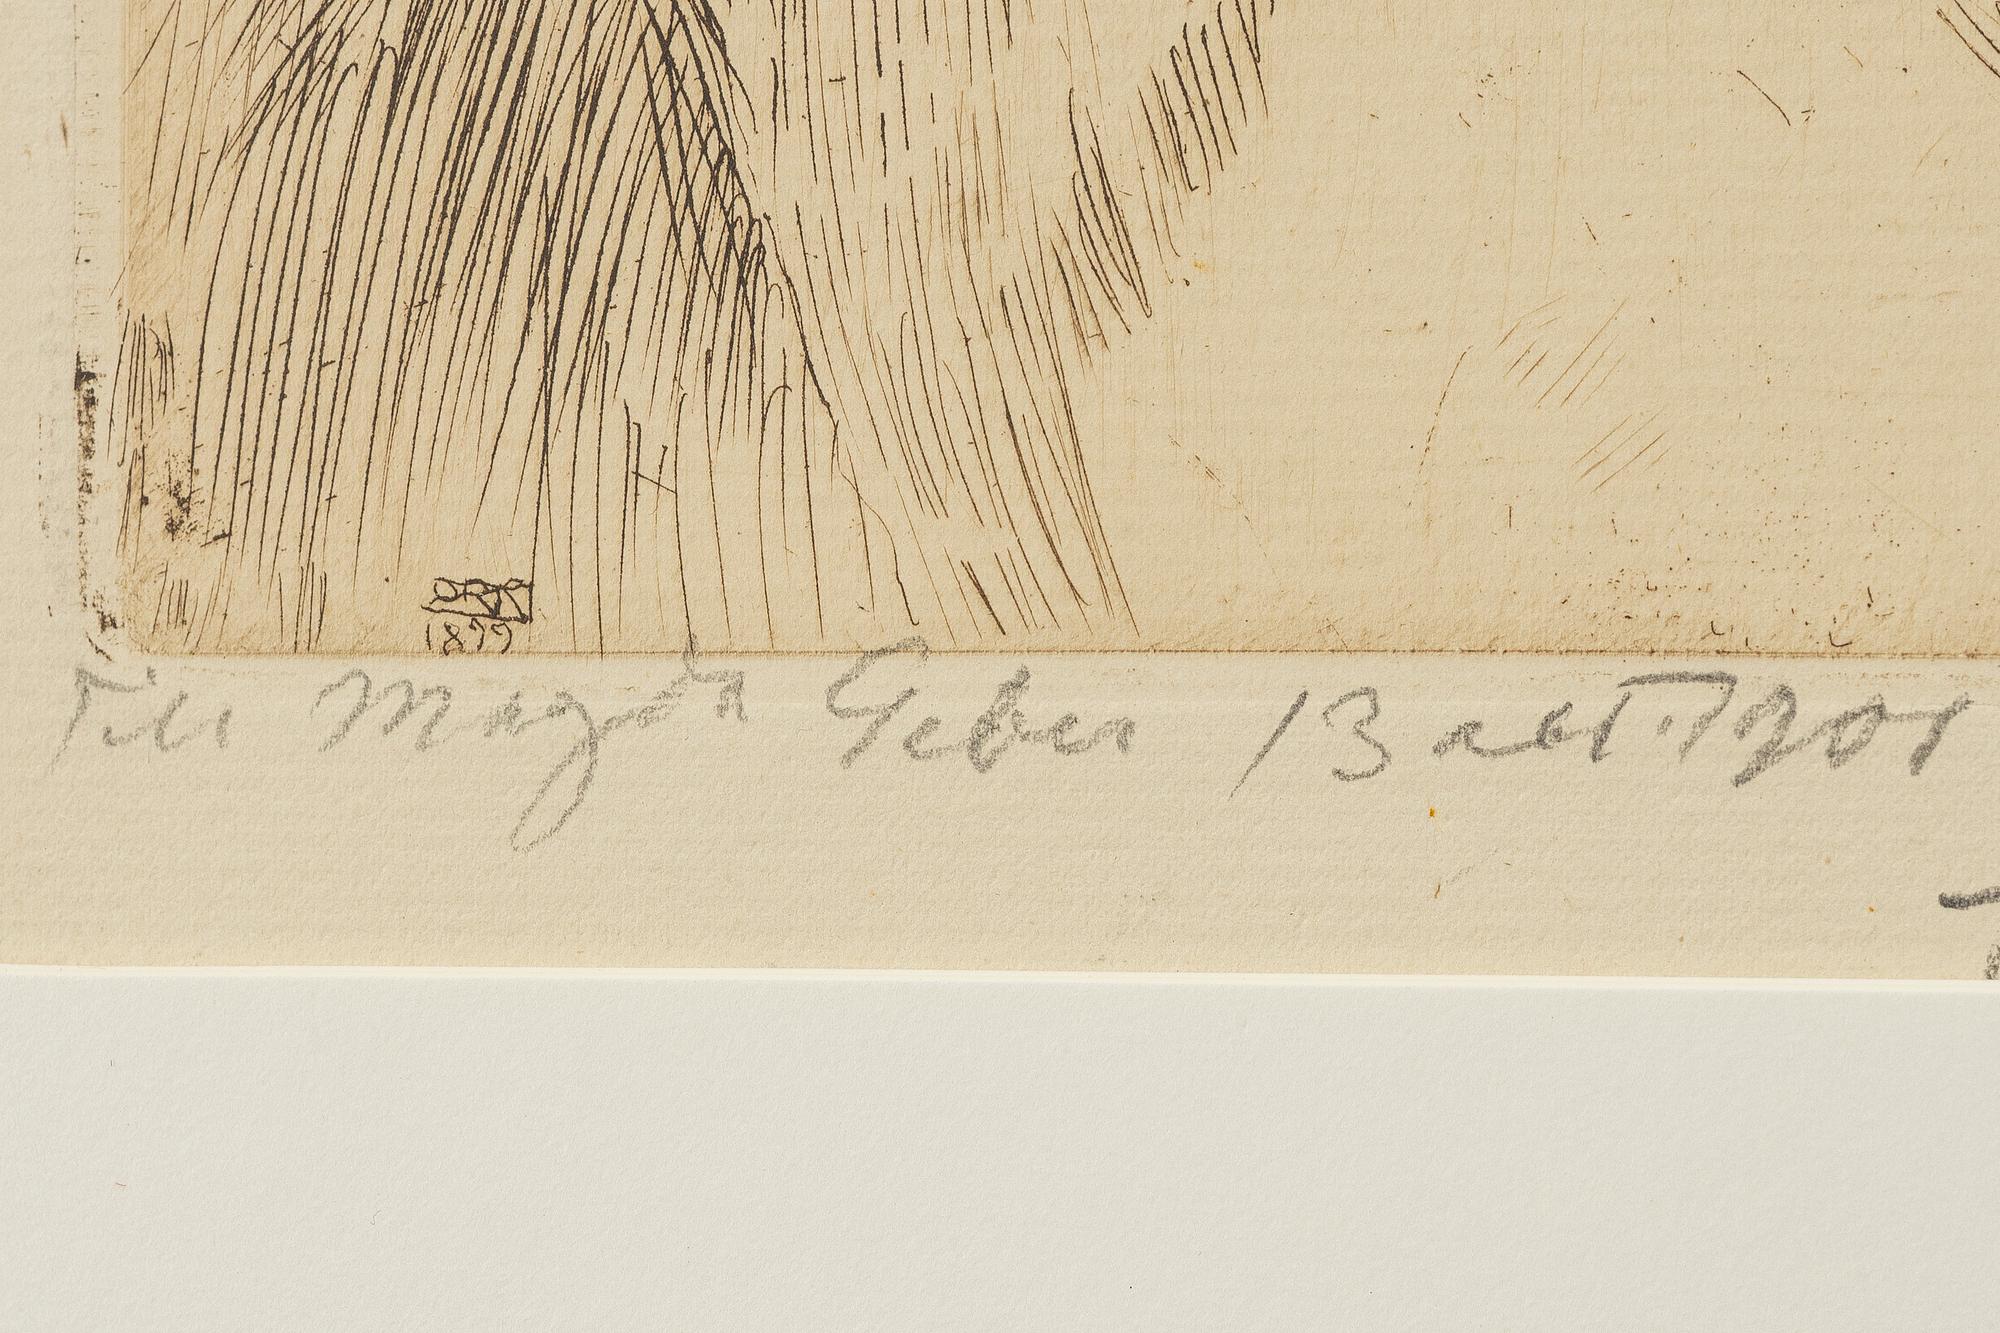 1899
Till Magda Geber 13 oct. 1901